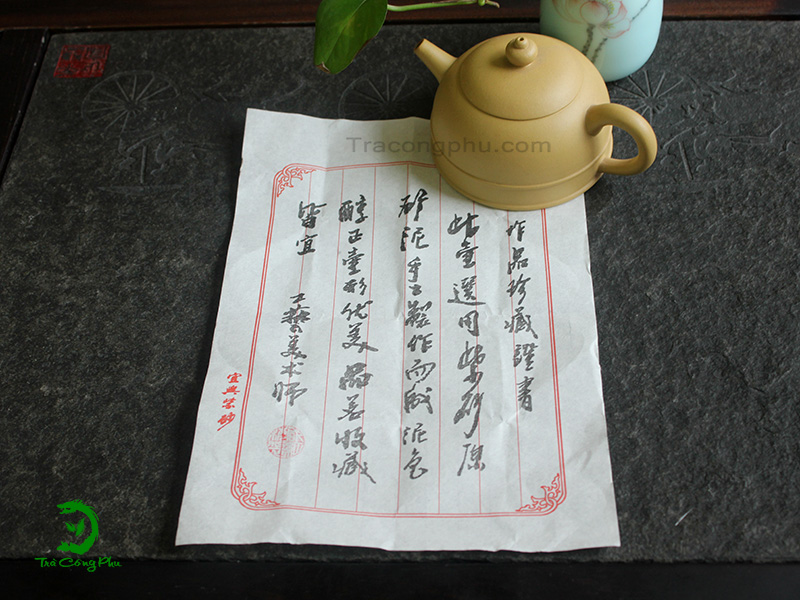 Tracongphu.com
作品珍藏證書
此壺選用紫砂原
矿泥手工製作而成泥色
醇正壺形优美品茗收藏
皆宜
工藝美术师
宜興紫砂
Trà Công Phu